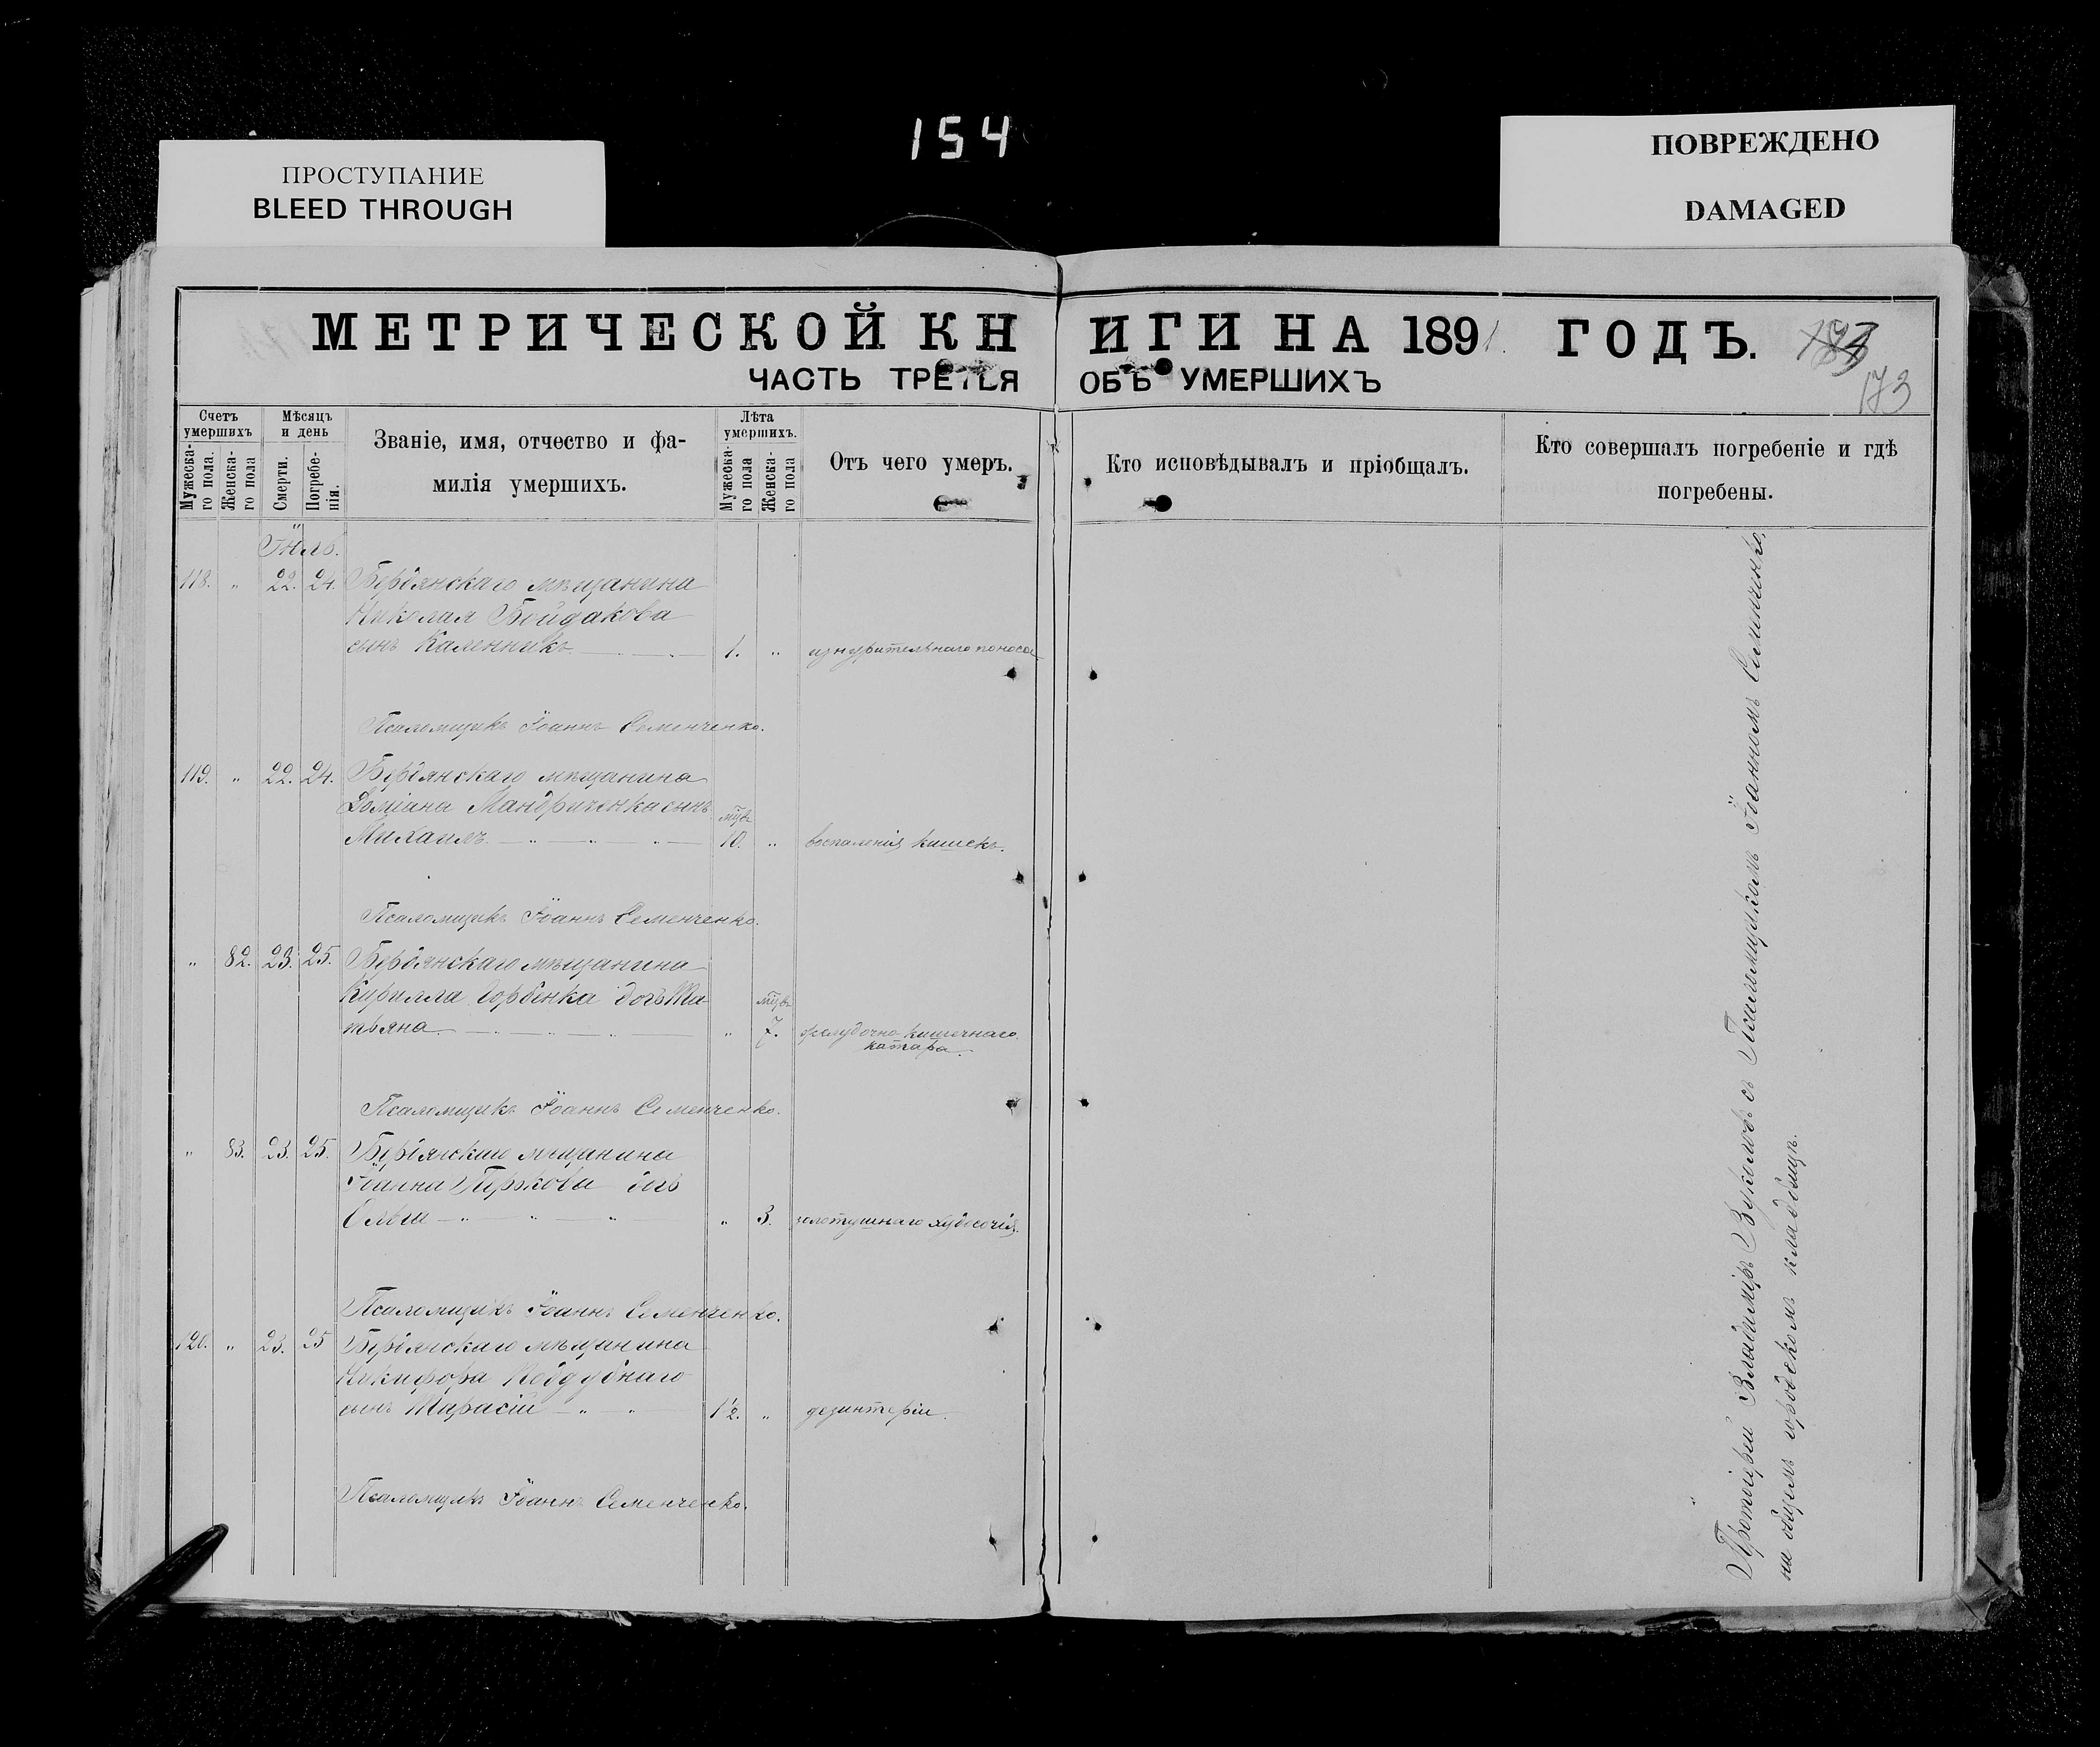 154
ПРОСТУПАНИЕ
BLEED THROUGH
ПОВРЕЖДЕНО
DAMAGED
МЕТРИЧЕСКОЙ КНИГИ НА 1891 ГОДЪ.
173
ЧАСТЬ ТРЕТЬЯ ОБЪ УМЕРШИХЪ
Счетъ умершихъ
Мужеска-го пола.
Женска-го пола
Мѣсяцъ и день
Смерти.
Погребе-нія.
Званіе, имя, отчество и фа-
милія умершихъ.
Лѣта умершихъ.
Мужеска-го пола
Женска-го пола
Отъ чего умеръ.
Кто исповѣдывалъ и пріобщалъ.
Кто совершалъ погребеніе и гдѣ
погребены.
Іюль.
118. " 22. 24. Бердянскаго мѣщанина
Николая Бойдакова
сынъ Каленникъ 1. " изнурительнаго поноса
Псаломщикъ Іоаннъ Семенченко.
119. " 22. 24. Бердянскаго мѣщанина
Доміана Мандриченка сынъ
Михаилъ 10. " воспаленія кишекъ.
Псаломщикъ Іоаннъ Семенченко.
" 82. 23. 25. Бердянскаго мѣщанина
Кирилла Горбенка дочь Та-
тьяна " 7. желудочно-кишечнаго
катара.
Псаломщикъ Іоаннъ Семенченко.
" 83. 23. 25. Бердянскаго мѣщанина
Іоанна дочь
Ольга " 3. золотушнаго худосочія.
Псаломщикъ Іоаннъ Семенченко.
120. " 23. 25 Бердянскаго мѣщанина
Никифора Поддубнаго
сынъ Тарасій 1½. " дезинтеріи.
Псаломщикъ Іоаннъ Семенченко.
Протоіерей Владиміръ Вукуловъ съ Псаломщикомъ Іоанномъ Семенченко,
на общемъ городскомъ кладбищѣ.